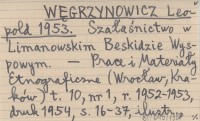 WĘGRZYNOWICZ Leo-
pold 1953. Szałaśnictwo w
Limanowskim Beskidzie Wys-
powym. — Prace i Materiały
Etnograficzne (Wrocław, Kra-
ków) t. 10, nr 1, r. 1952-1953,
druk 1954, s. 16-37, ilustr.